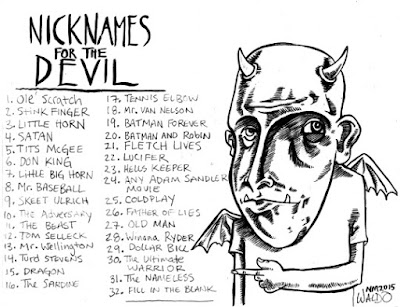 NICKNAMES
FOR THE
DEVIL
1. Ole' Scratch
2. STINK FINGER
3. LITTLE HORN
4. SATAN
5. TITS MCGEE
6. DON KING
7. LITTLE BIG HORN
8. MR. BASEBALL
9. SKEET ULRICH
10. THE ADVERSARY
11. THE BEAST
12. TOM SELLECK
13. MR. WELLINGTON
14. TURD STEVENS
15. DRAGON
16. THE SARDINE
17. TENNIS ELBOW
18. MR. VAN NELSON
19. BATMAN FOREVER
20. BATMAN AND ROBIN
21. FLETCH LIVES
22. LUCIFER
23. HELLS KEEPER
24. ANY ADAM SANDLER
MOVIE
25. COLDPLAY
26. FATHER OF LIES
27. OLD MAN
28. WINONA RYDER
29. DOLLAR BILL
30. THE ULTIMATE
WARRIOR
31. THE NAMELESS
32. FILL IN THE BLANK
NM2015
WALDO